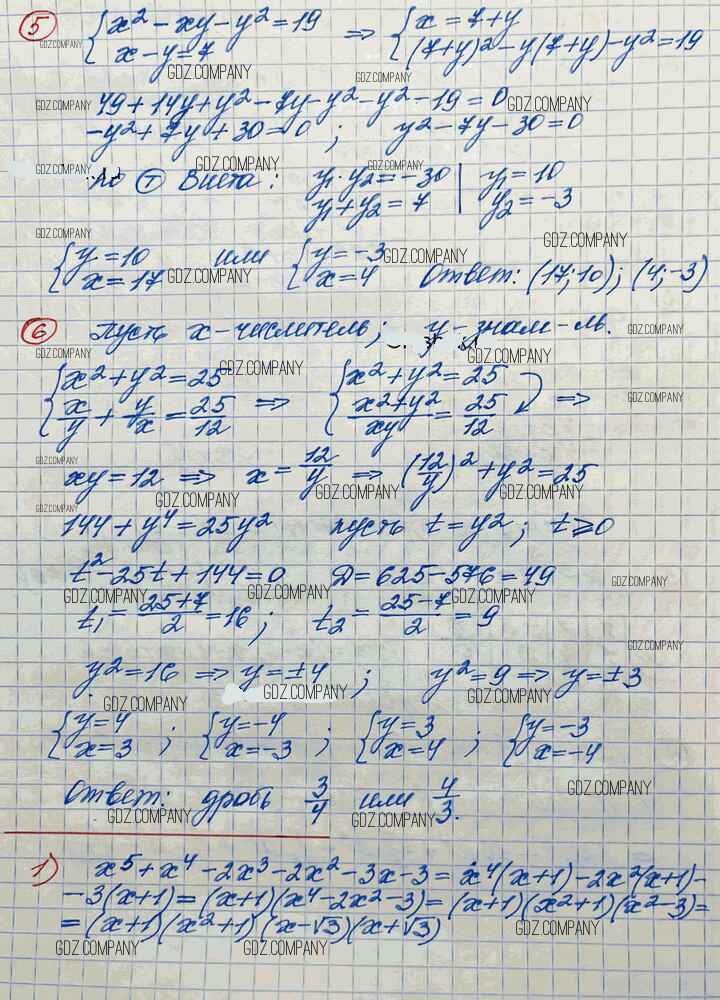 5 { x² - xy - y² = 19 => { x = 7 + y
{ x - y = 7 { (7+y)² - y(7+y) - y² = 19
49 + 14y + y² - 7y - y² - y² - 19 = 0
-y² + 7y + 30 = 0 ; y² - 7y - 30 = 0
По Т Виета: y₁·y₂ = -30 | y₁ = 10
y₁ + y₂ = 7 | y₂ = -3
{ y = 10 или { y = -3
{ x = 17 { x = 4 Ответ: (17; 10); (4; -3)
6 пусть x - числитель; y - знам-ль.
{ x² + y² = 25 { x² + y² = 25
{ x/y + y/x = 25/12 => { (x²+y²)/xy = 25/12 =>
xy = 12 => x = 12/y => (12/y)² + y² = 25
144 + y⁴ = 25y² пусть t = y² ; t ⩾ 0
t² - 25t + 144 = 0 D = 625 - 576 = 49
t₁ = (25+7)/2 = 16 ; t₂ = (25-7)/2 = 9
y² = 16 => y = ±4 ; y² = 9 => y = ±3
{ y = 4 ; { y = -4 ; { y = 3 ; { y = -3
{ x = 3 { x = -3 { x = 4 { x = -4
Ответ: дробь 3/4 или 4/3.
1) x⁵ + x⁴ - 2x³ - 2x² - 3x - 3 = x⁴(x+1) - 2x²(x+1) -
- 3(x+1) = (x+1)(x⁴ - 2x² - 3) = (x+1)(x²+1)(x²-3) =
= (x+1)(x²+1)(x-√3)(x+√3)
GDZ.COMPANY